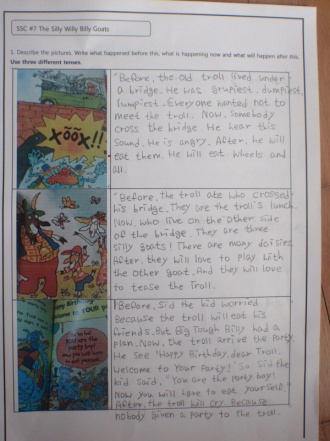 SSC #7 The Silly Willy Billy Goats
1. Describe the pictures. Write what happened before this, what is happening now and what will happen after this.
Use three different tenses.
"Before, the old troll lived under
a bridge. He was grupiest, dumpiest,
lumpiest. Everyone wanted not to
meet the troll. Now, somebody
cross the bridge. He hear this
sound. He is angry. After, he will
eat them. He will eat wheels and
all.
XÕÕX!!
"Before, the troll ate who crossed
his bridge. They are the troll's lunch.
Now, who live on the other side
of the bridge. They are three
silly goats! There are many daisies.
After, they will love to play with
the other goat. And they will love
to tease the troll.
"Before, Sid the kid worried
because the troll will eat his
friends. But Big Tough Billy had a
plan. Now, the troll arrive the Party.
He see "Happy Birthday, dear Troll,
welcome to Your Party!" So Sid the
kid said, "You are the party boy!
Now you will have to eat yourself."
After, the troll will cry because
nobody given a party to the troll.